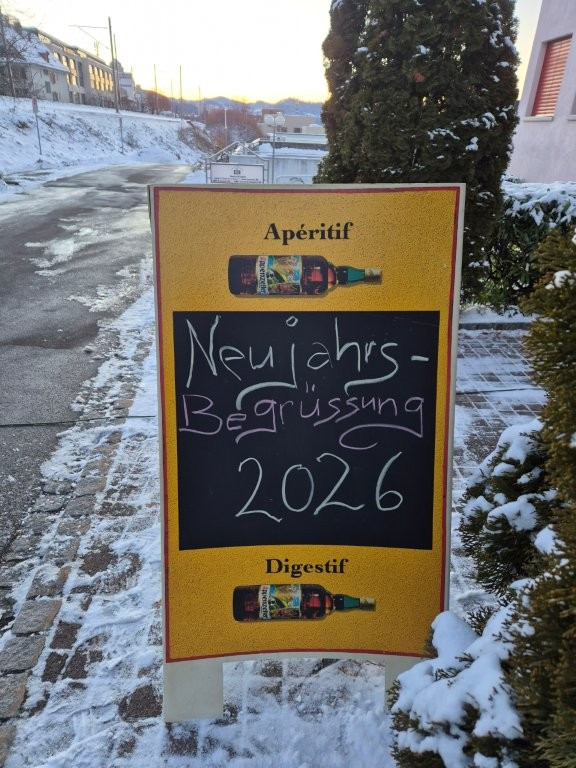 Apéritif
Neujahrs-
Begrüssung
2026
Digestif